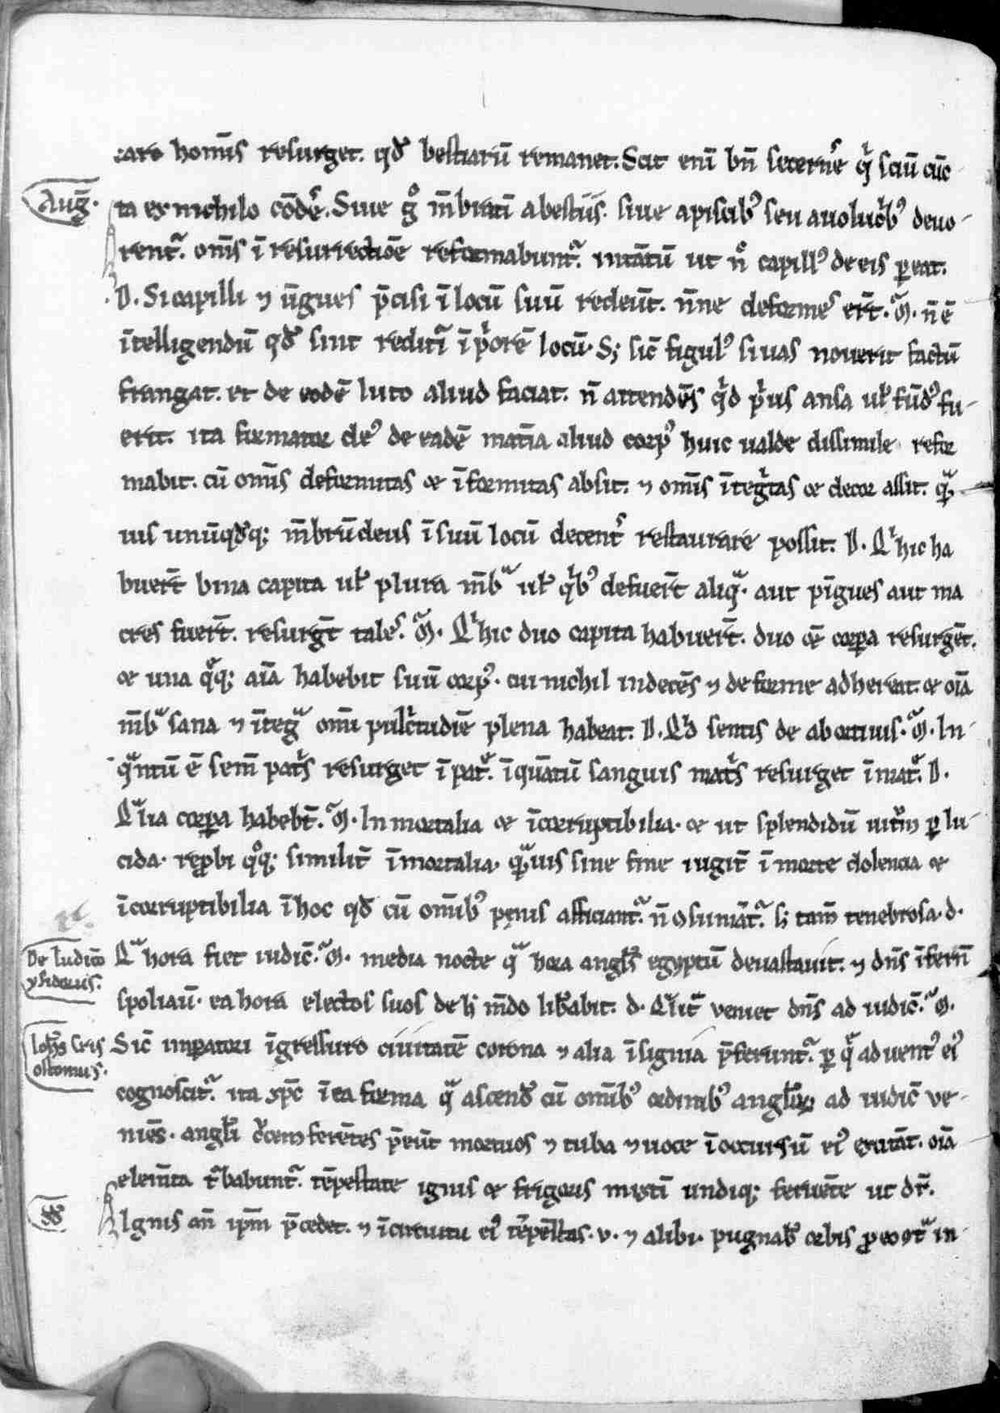 caro hom̄is resurget. qd̕ bestiarū remanet. Scit enī bn̄ secern̄e qͥ sciu̅ cūc
Aug̅.
ta ex nichilo cōde͛. Siue gͦ m̄bratī a bestiis. siue a piscibꝰ seu a uolucͥbꝰ deuo-
rentᷣ. om̄s ī resurrectiōe reformabuntᷣ. intātū ut nͦ capillꝰ de eis ꝑeat.
.D. Si capilli ⁊ ūgues p̄cisi ī locū suū redeūt. nͫne deformes erūt. M̃. n̄ ē
ītelligendū qd̕ sint redituͥ ī pͥorē locū. S; sic̄ figulꝰ si uas nouerit factū
frangat. et de eodē luto aliud faciat. n̄ attendēs qͥd pͥus ansa uł fūdꝰ fu-
erit. ita formator deꝰ de eadē mat̄ia aliud corpꝰ huic ualde dissimile refor
mabit. cū om̄is deformitas ⁊ īformitas absit. ⁊ om̄is ītegͥtas ⁊ decor assit. qᷓ-
uis unūqd̕q; m̄brū deus ī suū locū decent͛ restaurare possit. D. Qͥ hic ha
buer̄t bina capita uł plura m̄bᷓ uł qͥbꝰ defuer̄t aliqᷓ. aut pīgues aut ma
cres fuer̄t. resurgēt tales. M̃. Qͥ hic duo capita habuer̄t. duo ⁊ corꝑa resurgēt.
⁊ una qͣq; aīa habebit suū corpꝰ. cui nichil indecēs ⁊ deforme adhereat. ⁊ oīa
m̄bᷓ sana ⁊ ītegᷓ omī pulcͥtudiē plena habeat. D. Qͥd sentis de abortiuis. M̃. In-
qᷓntū ē sem̄ patͥs resurget ī patͤ. īquātū sanguis matͥs resurget ī matͤ. D.
Qͣlia corꝑa habebūt. M̃. Inmortalia ⁊ īcorruptibilia. ⁊ ut splendidū uitͦm ꝑ lu-
cida. reꝓbi qͦq; similit̄ īmortalia. qᷓuis sine fine iugit̄ ī morte dolencia ⁊
īcorruptibilia ī hoc qd̕ cū om̄ibꝰ penis afficiantᷣ. n̄ ꝯsumātᷣ. s; tam̄ tenebrosa. d.
De Iudico
Qᷓ hora fiet iudic̄. M̃. media nocte qᷓ hora anglꝰs egyptū deuastauit. ⁊ dn̄s īfernū
ysidorus.
spoliauit. ea hora electos suos de hͦ m̄do lib̄abit. d. Qͣlit̄ veniet dn̄s ad iudic̄. M̃.
Ioh̄s Cris
Sic̄ imꝑatori īgressuro ciuitatē corona ⁊ alia īsignia p̄feruntᷣ. ꝑ qͤ aduentꝰ eiꝰ
ostomus.
cognoscitᷣ. ita xp̄c ī ea forma qᷓ ascend̕ cū om̄ibꝰ ordinibꝰ angloꝝ ad iudic̄ ve-
niēs. angli cͥcem ferētes p̄eūt mortuos ⁊ tuba ⁊ uoce ī occursū eiꝰ excitāt. oīa
elem̄ta tͥbabuntᷣ. tēpestate ignis ⁊ frigoris mixtī undiq; feruēte ut dr̄.
Ignis añ ipm̄ p̄cedet. ⁊ ī circuitu eiꝰ tēpestas. v. ⁊ alibi. pugnab̕ orbis ꝓ eo ꝯtᷓ in-